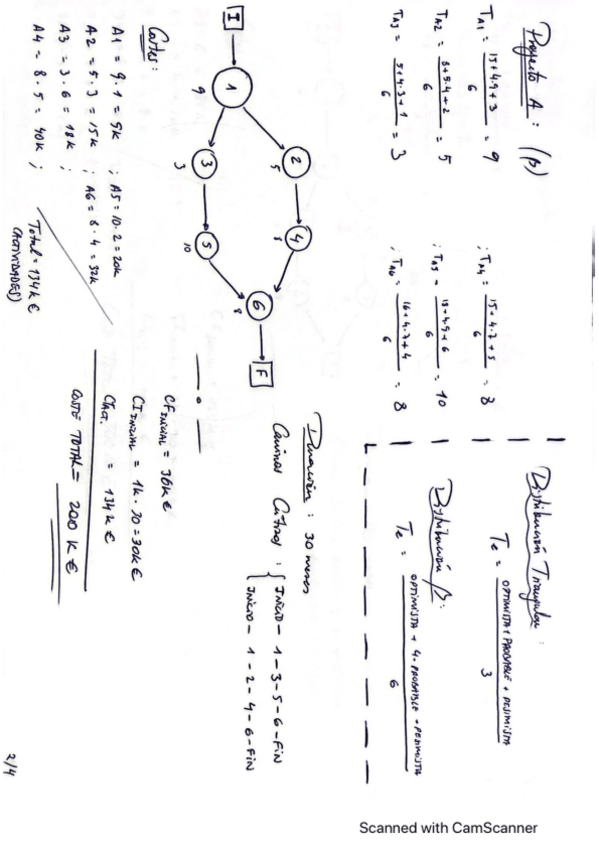 Proyecto A: (β)
T A1 = 15+4·9+3 / 6 = 9 ; T A4 = 15+4·7+5 / 6 = 8
T A2 = 8+5·4+2 / 6 = 5 ; T A5 = 18+4·9+6 / 6 = 10
T A3 = 5+4·3+1 / 6 = 3 ; T A6 = 16+4·7+4 / 6 = 8
Distribución Triangular:
Te = OPTIMISTA + PROBABLE + PESIMISTA / 3
Distribución β:
Te = OPTIMISTA + 4·PROBABLE + PESIMISTA / 6
I
1
9
2
5
3
3
4
8
5
10
6
8
F
Duración: 30 meses
Caminos Críticos: { INICIO - 1 - 3 - 5 - 6 - FIN
INICIO - 1 - 2 - 4 - 6 - FIN
Costes:
A1 = 9·1 = 9k ; A5 = 10·2 = 20k
A2 = 5·3 = 15k ; A6 = 8·4 = 32k
A3 = 3·6 = 18k ;
A4 = 8·5 = 40k ;
Total = 134k €
(ACTIVIDADES)
CF INICIAL = 36k €
CI INICIAL = 1k · 30 = 30k €
C Act. = 134k €
COSTE TOTAL = 200k €
2/4
Scanned with CamScanner